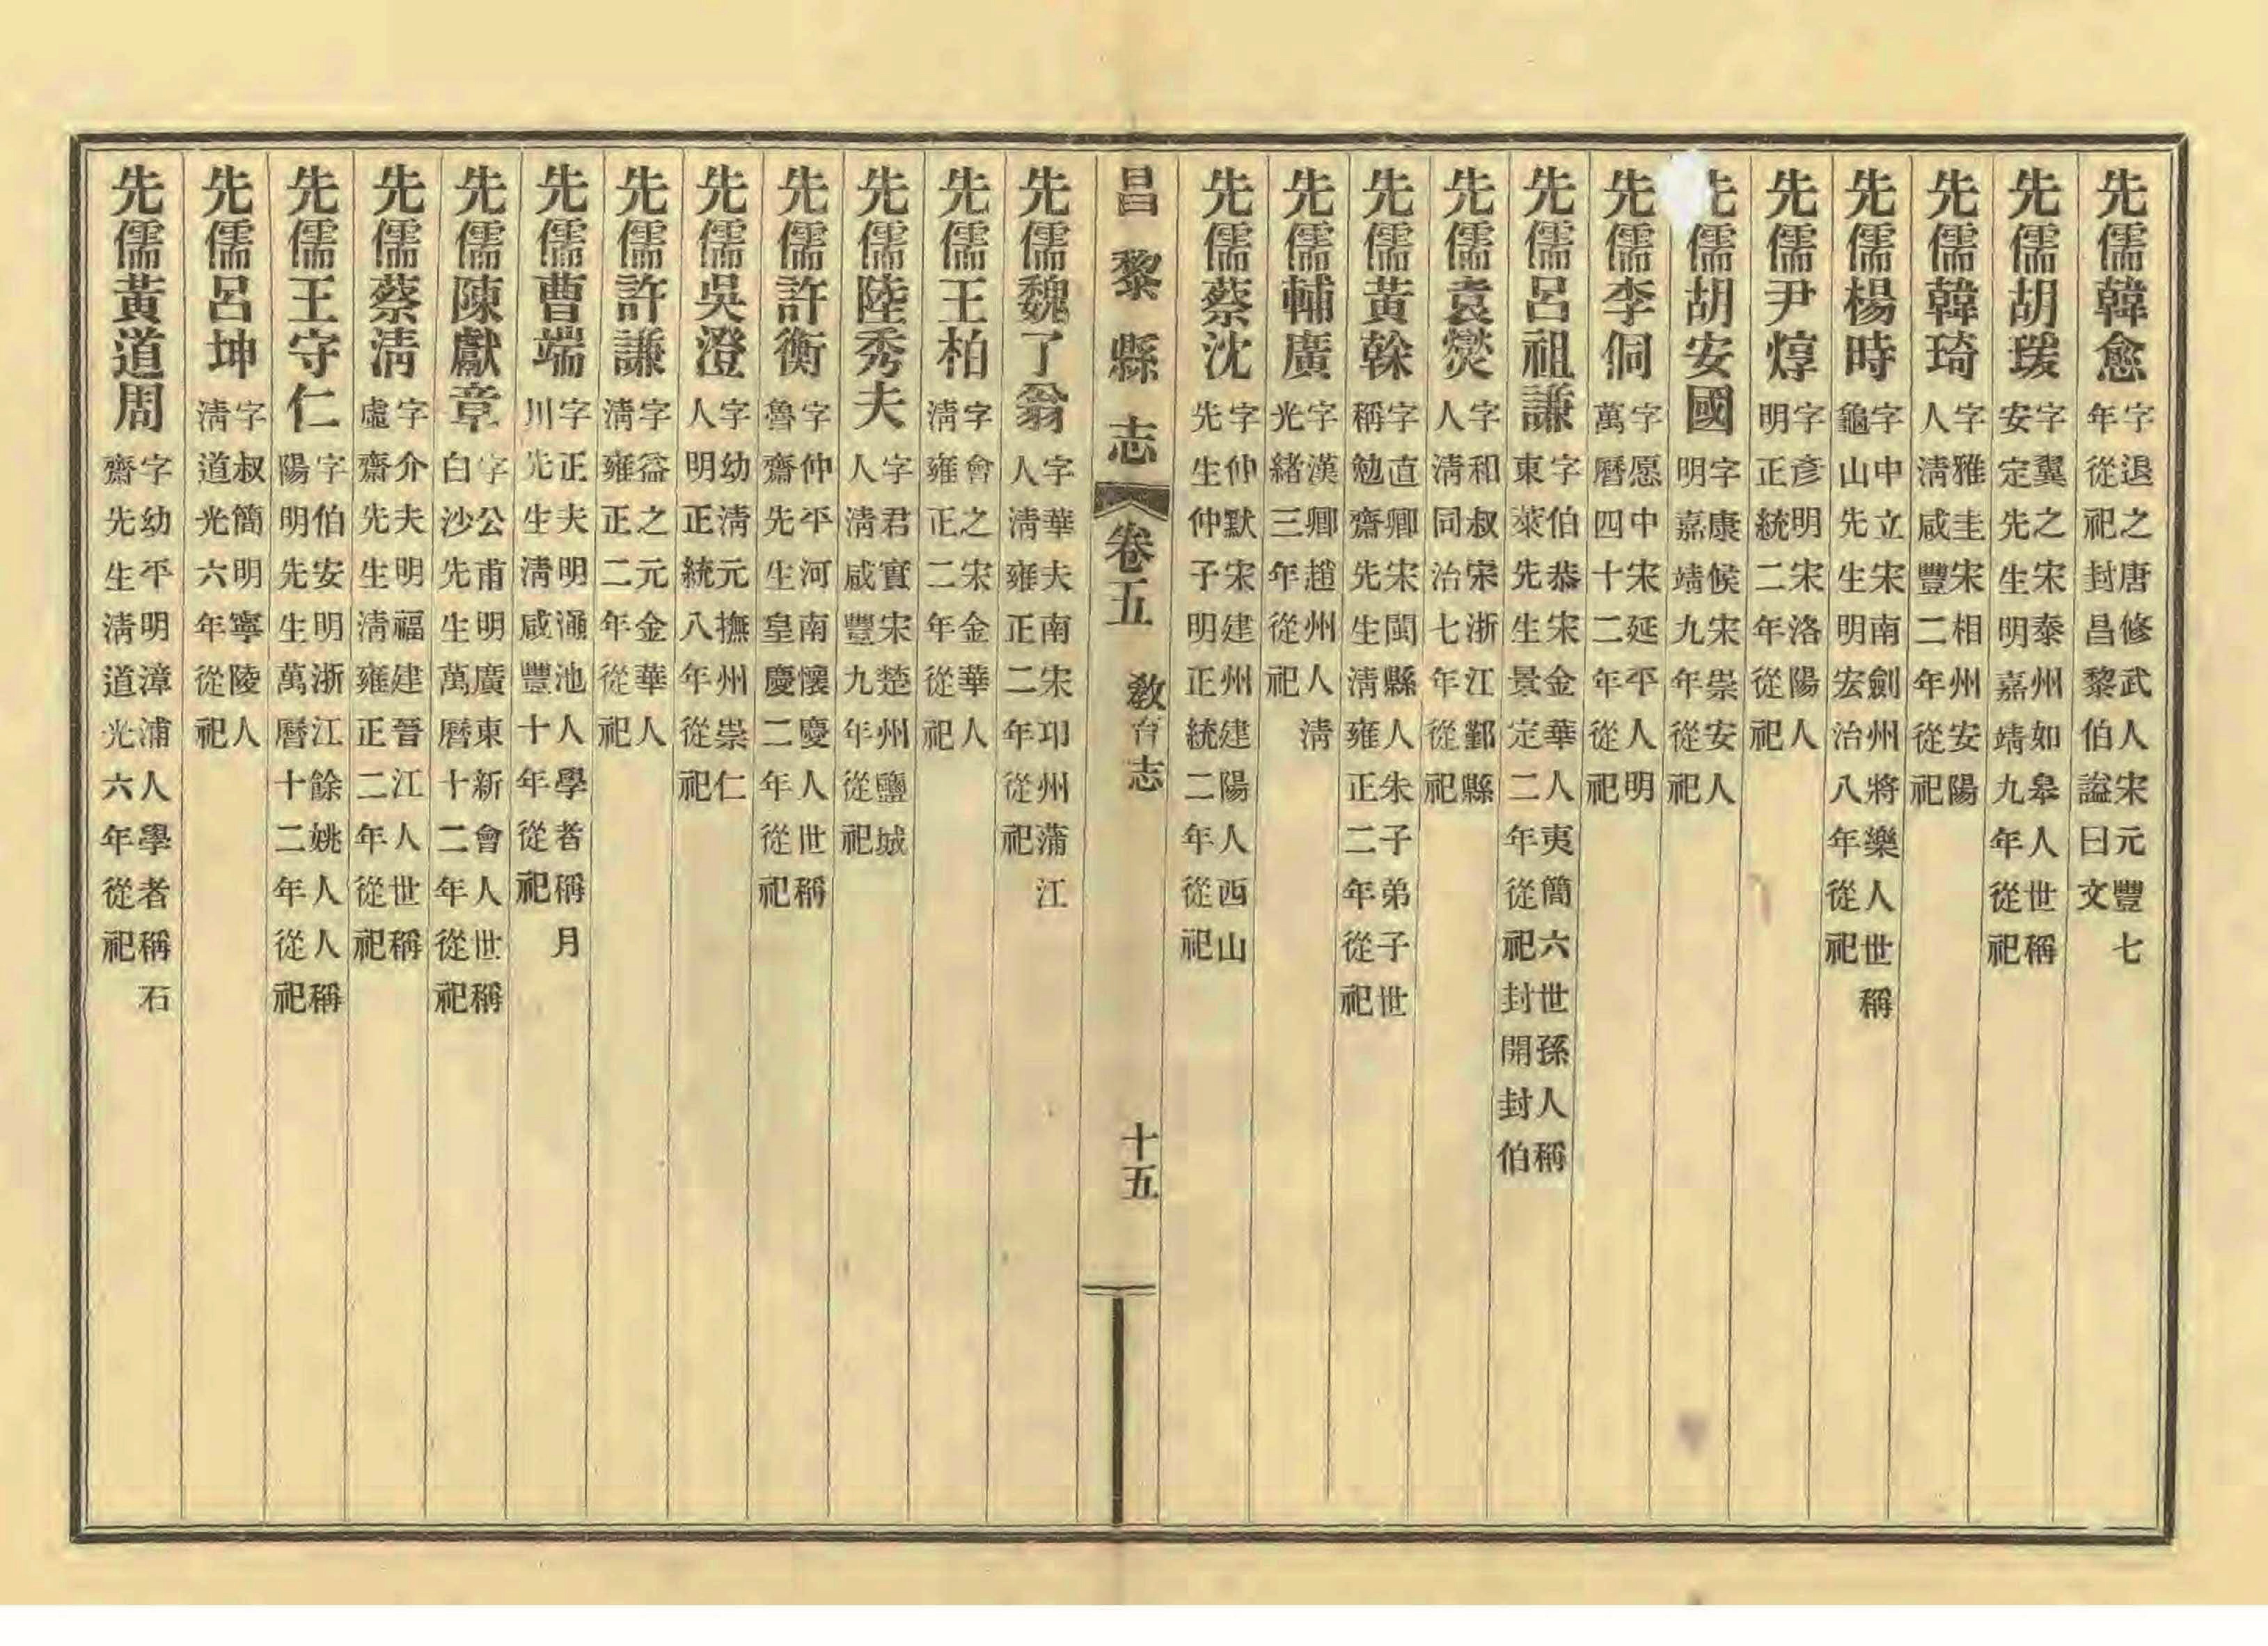 先儒韓愈字退之唐修武人宋元豐七年從祀封昌黎伯諡曰文
先儒胡瑗字翼之宋泰州如皋人世稱安定先生明嘉靖九年從祀
先儒韓琦字雅圭宋相州安陽人清咸豐二年從祀
先儒楊時字中立宋南劍州將樂人世稱龜山先生明宏治八年從祀
先儒尹焞字彥明宋洛陽人明正統二年從祀
先儒胡安國字康候宋崇安人明嘉靖九年從祀
先儒李侗字愿中宋延平人明萬曆四十二年從祀
先儒呂祖謙字伯恭宋金華人夷簡六世孫人稱東萊先生景定二年從祀封開封伯
先儒袁燮字和叔宋浙江鄞縣人清同治七年從祀
先儒輔廣字漢卿趙州人清光緒三年從祀
先儒黃榦字直卿宋閩縣人朱子弟子世稱勉齋先生清雍正二年從祀
先儒蔡沈字仲默宋建州建陽人西山先生仲子明正統二年從祀
昌黎縣志 卷五 教育志 十五
先儒魏了翁字華夫南宋邛州蒲江人清雍正二年從祀
先儒王柏字會之宋金華人清雍正二年從祀
先儒陸秀夫字君實宋楚州鹽城人清咸豐九年從祀
先儒許衡字仲平河南懷慶人世稱魯齋先生皇慶二年從祀
先儒吳澄字幼清元撫州崇仁人明正統八年從祀
先儒許謙字益之元金華人清雍正二年從祀
先儒曹端字正夫明澠池人學者稱月川先生清咸豐十年從祀
先儒陳獻章字公甫明廣東新會人世稱白沙先生萬曆十二年從祀
先儒蔡清字介夫明福建晉江人世稱虛齋先生清雍正二年從祀
先儒王守仁字伯安明浙江餘姚人人稱陽明先生萬曆十二年從祀
先儒呂坤字叔簡明寧陵人清道光六年從祀
先儒黃道周字幼平明漳浦人學者稱石齋先生清道光六年從祀